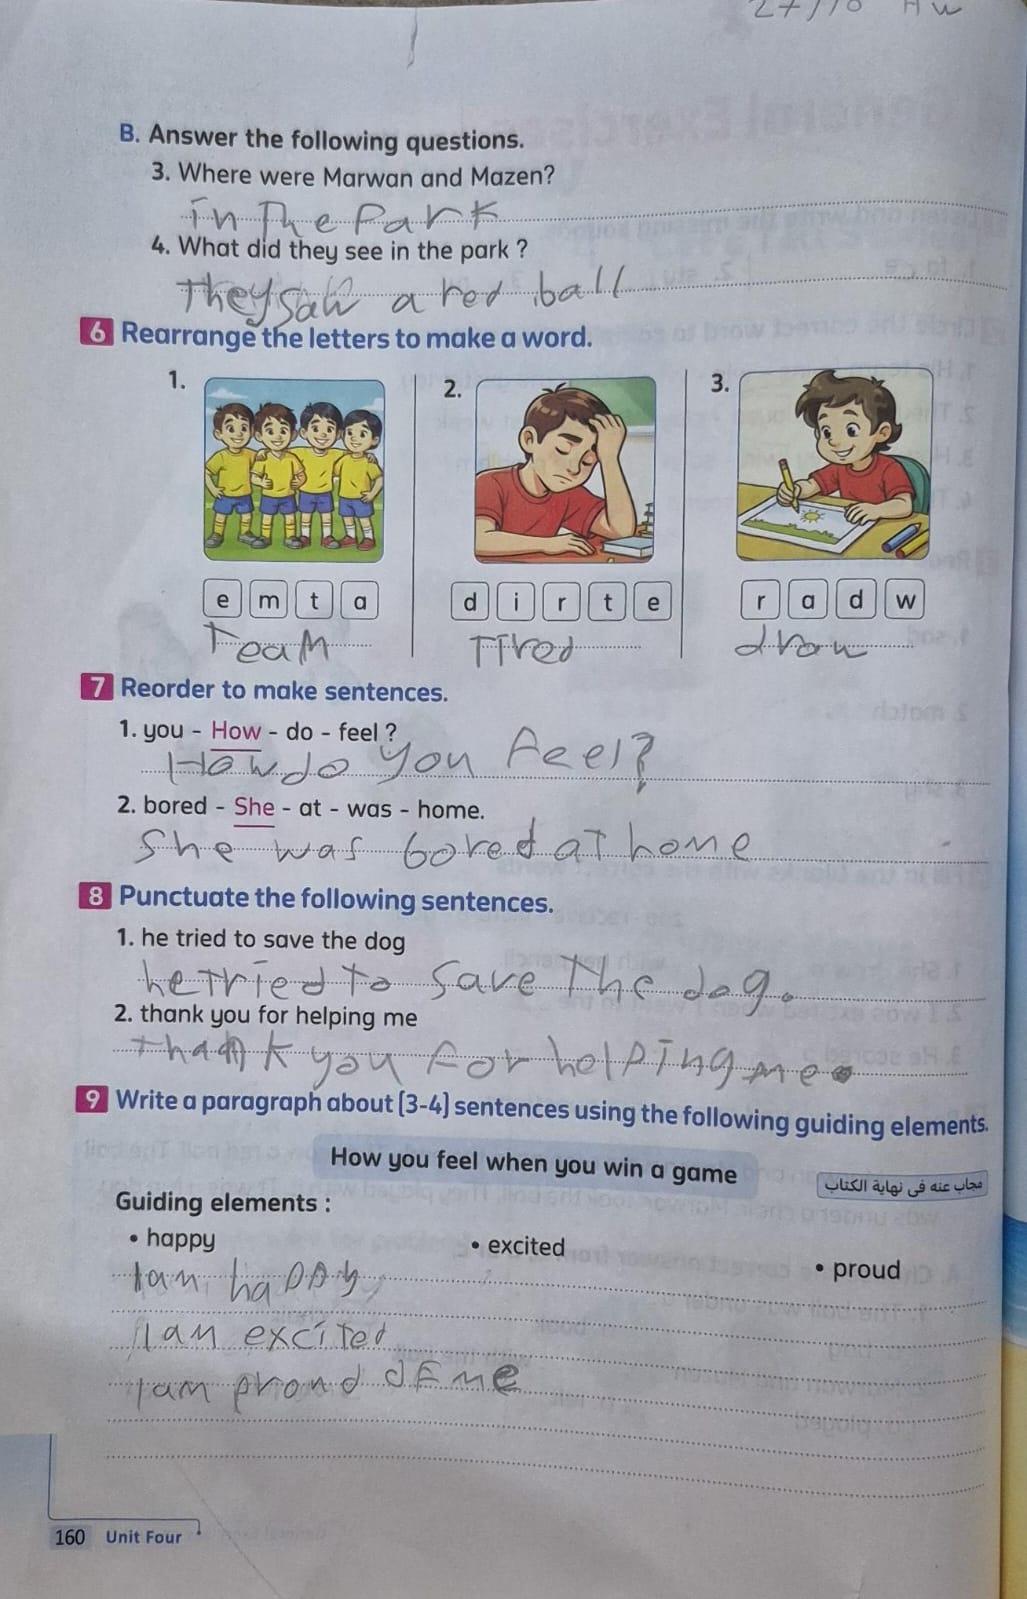 27/10 HW
B. Answer the following questions.
3. Where were Marwan and Mazen?
in The Park
4. What did they see in the park ?
They saw a red ball
6 Rearrange the letters to make a word.
1. 2. 3.
e m t a d i r t e r a d w
Team Tired draw
7 Reorder to make sentences.
1. you - How - do - feel ?
How do you feel?
2. bored - She - at - was - home.
She was bored at home
8 Punctuate the following sentences.
1. he tried to save the dog
he Tried to save The dog.
2. thank you for helping me
thank you for helping me.
9 Write a paragraph about (3-4) sentences using the following guiding elements.
How you feel when you win a game
مجاب عنه فى نهاية الكتاب
Guiding elements :
• happy • excited • proud
I am happy
I am excited
I am proud of me
160 Unit Four